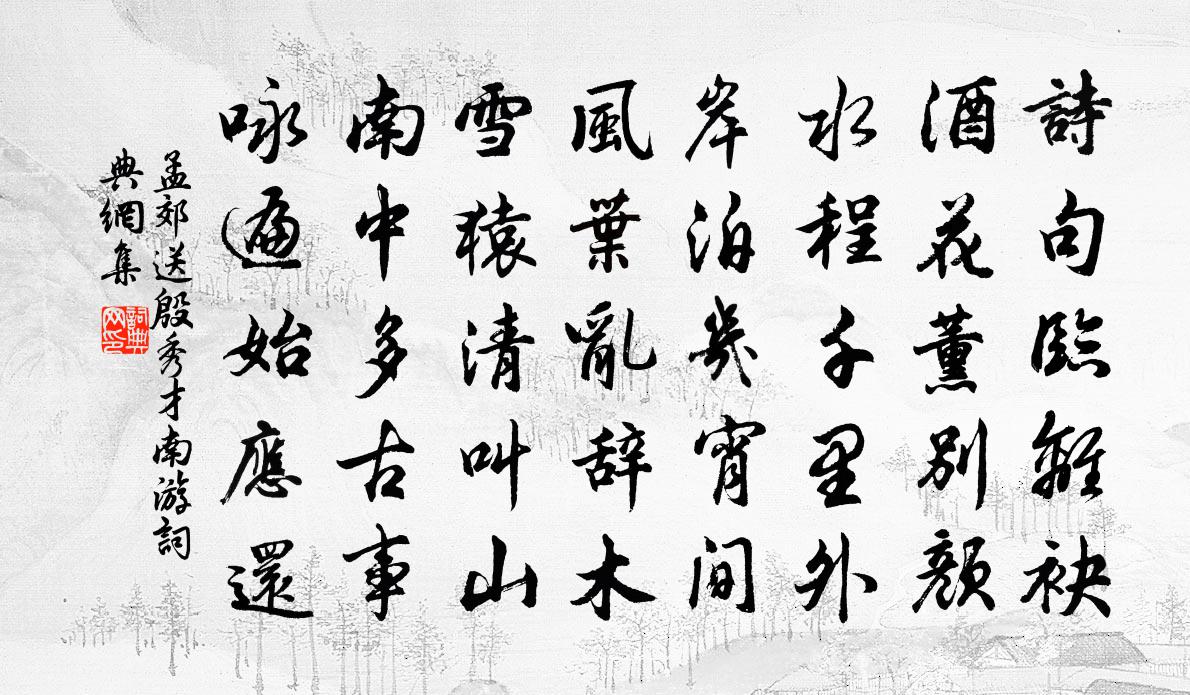 詩句臨離袂
酒花薰別顏
水程千里外
岸泊幾宵間
風葉亂辞木
雪猿清叫山
南中多古事
咏遍始應還
孟郊送殷秀才南游詞
典網集
詞典
网印